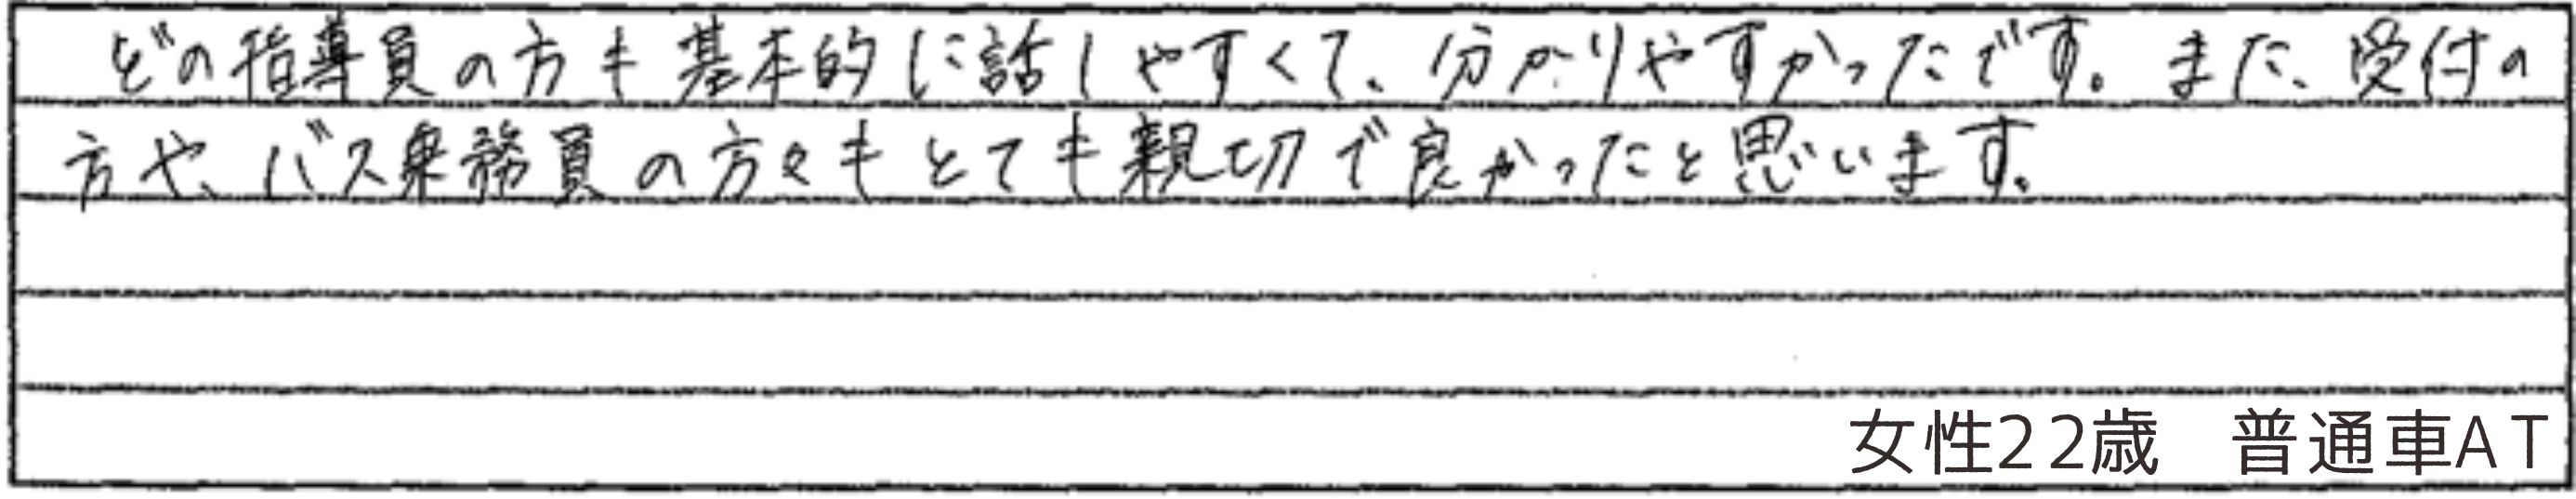 どの指導員の方も基本的に話しやすくて、分かりやすかったです。また、受付の
方や、バス乗務員の方々もとても親切で良かったと思います。
女性22歳　普通車AT